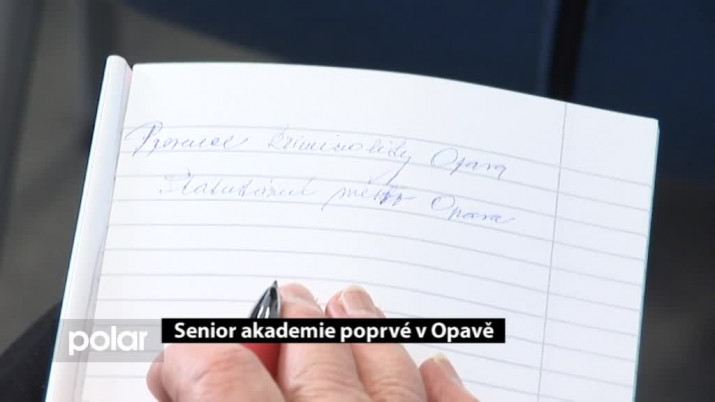 Prevence kriminality Opava
Statutární město Opava
polar
Senior akademie poprvé v Opavě